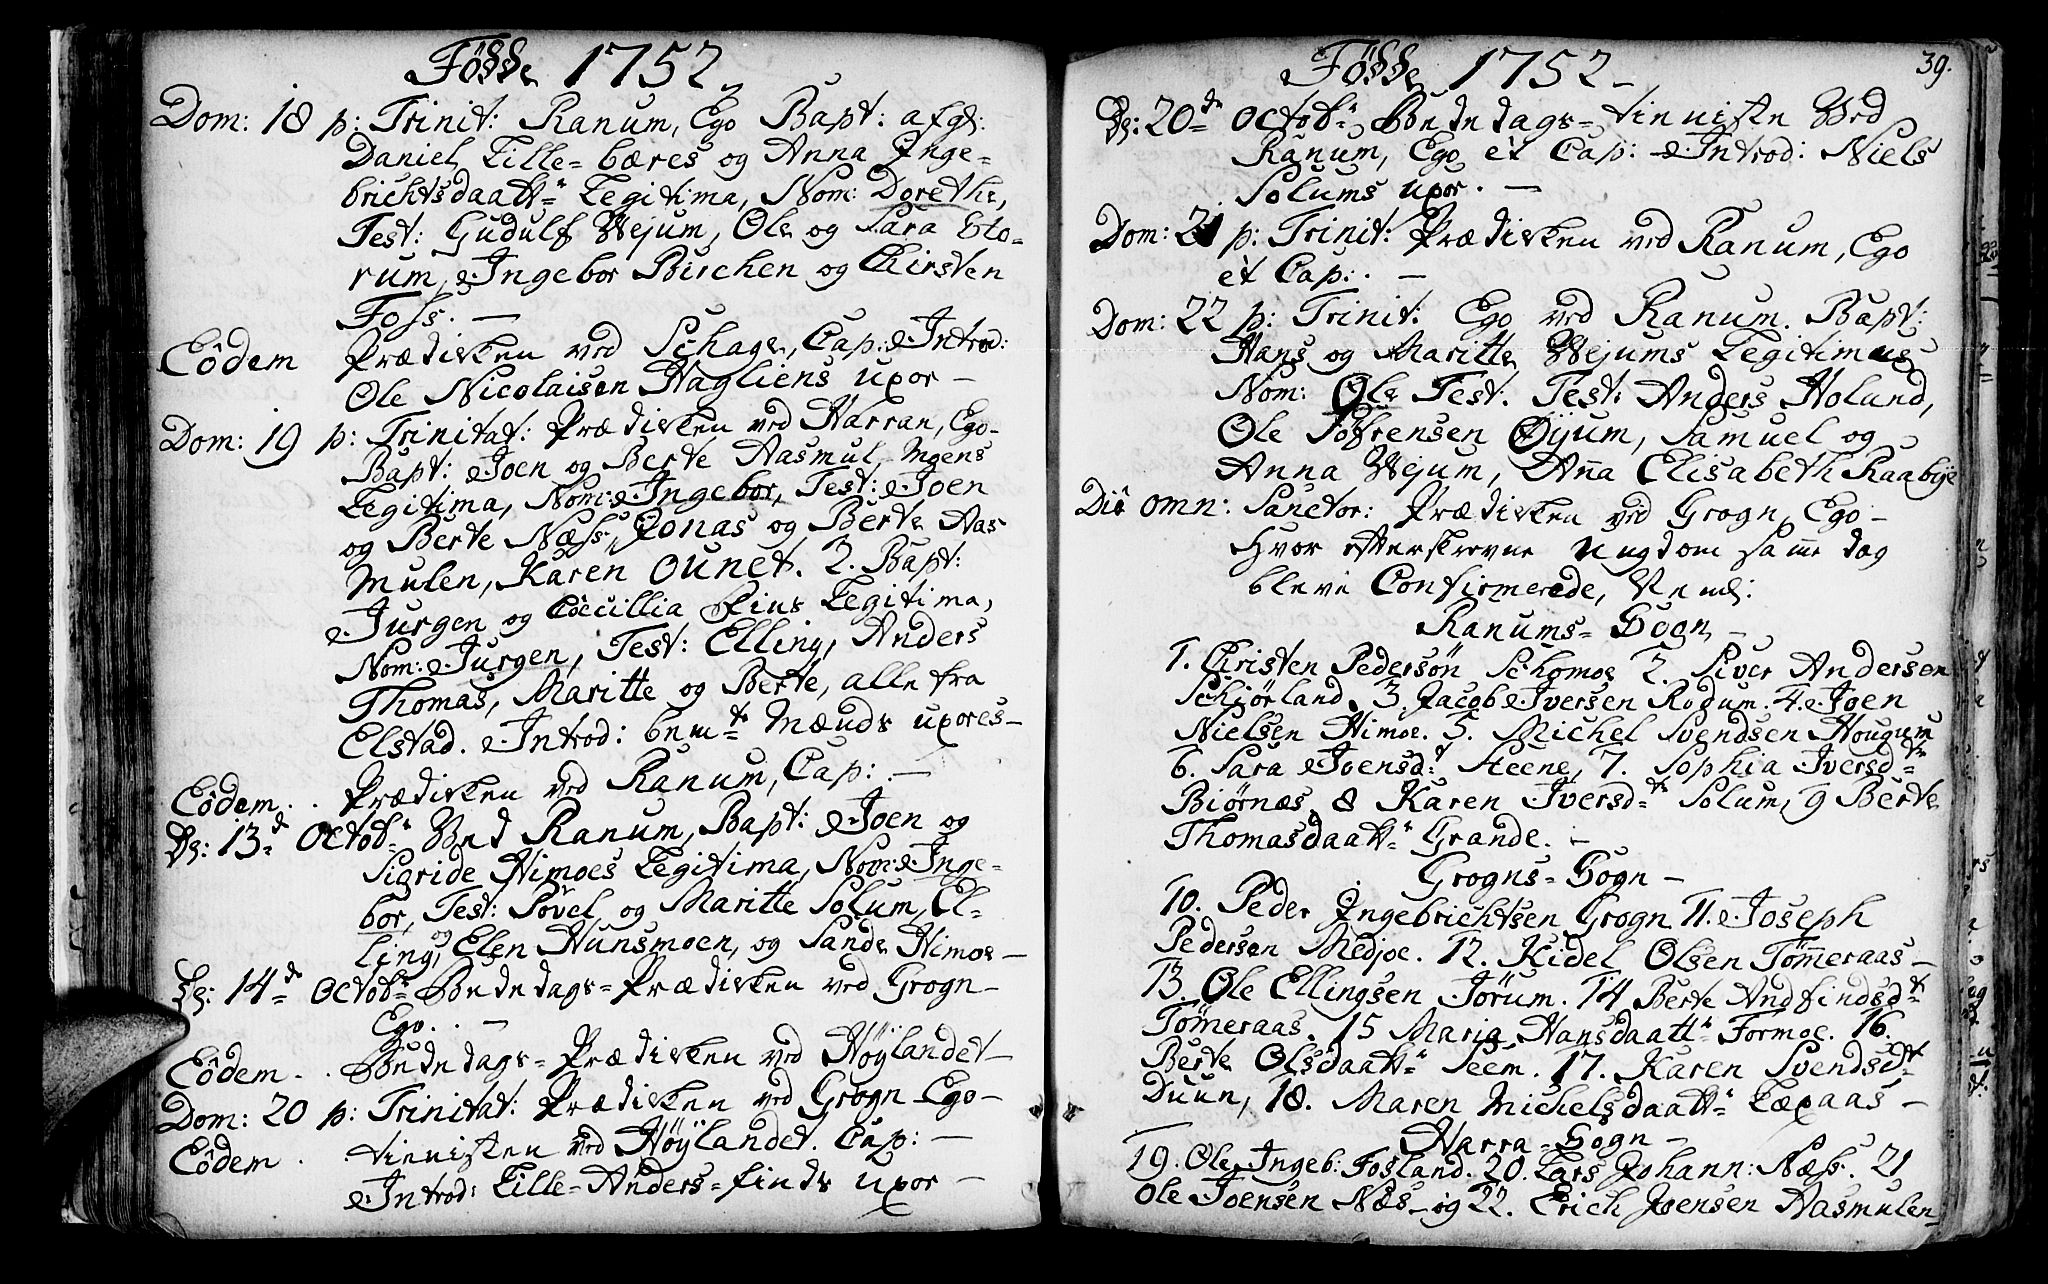 Födde 1752.
Dom: 18 p: Trinit: Ranum, Ego Bapt:
Daniel Lille=bæres og Anna Inge=
brichtsdaattr Legitima, Nom: Dorethe,
Test: Gudulf Wejum, Ole og Sara Sto=
rum, Ingebor Birchen og Chirsten
Foss. —
Eôdem Prædiken ved Schage, Cap: Introd:
Ole Nicolaisen Hagliens uxor —
Dom: 19 p: Trinitat: Prædiken ved Harran, Ego
Bapt: Joen og Berte Aasmul
Legitima, Nom: Ingebor, Test: Joen
og Berte Næss, Jonas og Berte Aas
mulen, Karen Ounet. 2. Bapt:
Jurgen og Cœcillia Fins Legitima,
Nom: Jurgen, Test: Elling, Anders
Thomas, Maritte og Berte, alle fra
Elstad. Introd: bemte Mænds uxores —
Eôdem. Prædiken ved Ranum, Cap: —
D: 13de Octobr Ved Ranum, Bapt: Joen og
Sigride Himoes Legitima, Nom: Inge=
bor, Test: Povel og Maritte Solum, El=
ling, og Elen Hunsmoen, og Sande Himoe —
D: 14de Octobr Bønde dags=Prædiken ved Grogn —
Ego. —
Eôdem. Bønde dags=Prædiken ved Høÿlandet —
Dom: 20 p: Trinitat: Prædiken ved Grogn Ego —
Eôdem. tienisten ved Høÿlandet. Cap: —
Introd: Lille=Anders=finds uxor —
Födde 1752 —
39.
D: 20de Octobr Bønde dags=tienisten Ved
Ranum, Ego et Cap: Introd: Niels
Solums uxor. —
Dom: 21 p: Trinit: Prædiken ved Ranum, Ego
et Cap: —
Dom: 22 p: Trinit: Ego ved Ranum. Bapt:
Hans og Maritte Wejums Legitimus
Nom: Ole Test. Test: Anders Holund,
Ole Tofrensen Øijum, Samuel og
Anna Wejum, Anna Elisabeth Raabye
Die omn: Sanctor: Prædiken ved Grogn, Ego —
Hvor efterskrevne Ungdom samme dag
bleve Confirmerede, Neml:
Ranums=Sogn —
1. Christen Pedersøn Schomoe 2. Siver Andersen
Schiørland. 3. Jacob Iversen Rodum. 4. Joen
Nielsen Himoe. 5. Michel Svendsen Hougum
6. Sara Joensdt Steene, 7. Sophia Iversdtr
Biørnæs 8 Karen Iversdtr Solum, 9 Berte
Thomasdaattr Grande. —
Grogns=Sogn —
10. Peder Ingebrichtsen Grogn 11. Joseph
Pedersen Medjoe. 12. Kidel Olsen Tømeraas —
13 Ole Ellingsen Jørum. 14 Berte Andfindsdtr
Tømeraas. 15 Maria Hansdaattr Formoe. 16.
Berte Olsdaattr Seem. 17. Karen Svendsdtr
Duun, 18. Maren Michelsdaattr Læxaas —
Harra=Sogn —
19. Ole Ingeb: Fosland. 20. Lars Johann: Næss. 21
Ole Joensen Næs og 22. Erich Joensen Aasmulen